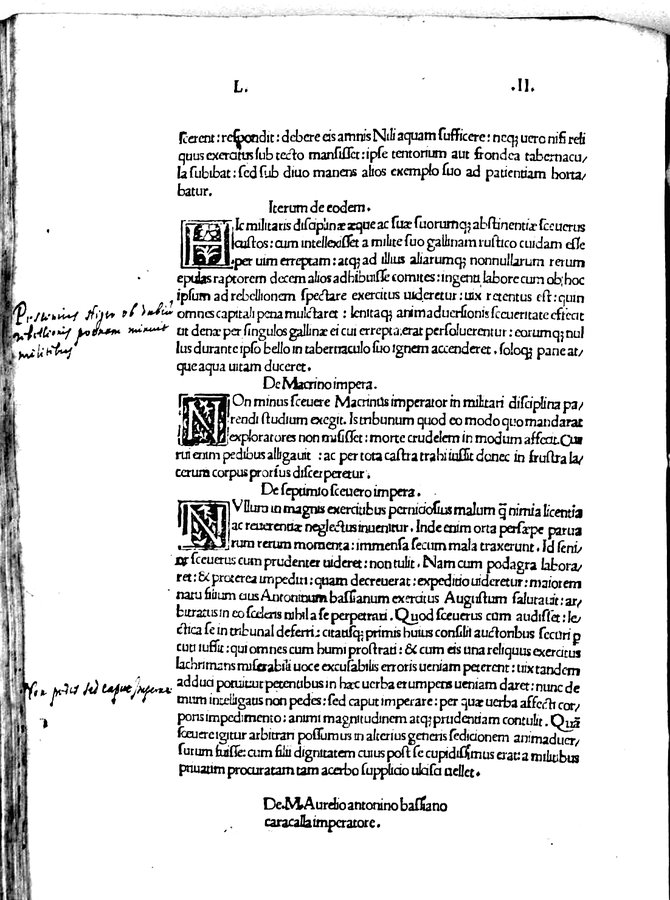 L. .II.
scerent: respondit: debere eis amnis Nili aquam sufficere: neq; uero nisi reli
quus exercitus sub tecto mansisset: ipse tentorium aut frondea tabernacu/
la subibat: sed sub diuo manens alios exemplo suo ad patientiam horta/
batur.
Iterum de eodem.
HIc militaris disciplinæ æque ac suæ suorumq; abstinentiæ sceuerus
custos: cum intellexisset a milite suo gallinam rustico cuidam esse
per uim erreptam: atq; ad illius aliarumq; nonnullarum rerum
epulas raptorem decem alios adhibuisse comites: ingenti labore cum ob hoc
ipsum ad rebellionem spectare exercitus uideretur: uix retentus est: quin
omnes capitali pena mulctaret: lenitaq; animaduersionis sceueritate effecit
ut denæ per singulos gallinæ ei cui errepta erat persoluerentur: eorumq; nul
lus durante ipso bello in tabernaculo suo ignem accenderet. soloq; pane at/
que aqua uitam duceret.
Pescenius Niger ob dubiū
rebellionis poenam minuit
militibus
De Macrino impera.
NOn minus sceuere Macrinus imperator in militari disciplina pa/
rendi studium exegit. Is tribunum quod eo modo quo mandarat
exploratores non misisset: morte crudelem in modum affecit. Cur
rui enim pedibus alligauit: ac per tota castra trahi iussit donec in frustra la/
cerum corpus prorsus discerperetur.
De septimio sceuero impera.
NVllum in magnis exercitibus perniciosius malum q̄ nimia licentia
ac reuerentiæ neglectus inuenitur. Inde enim orta persæpe parua
rum rerum momenta: immensa secum mala traxerunt. Id seni/
or sceuerus cum prudenter uideret: non tulit. Nam cum podagra labora/
ret: & propterea impediri: quam decreuerat: expeditio uideretur: maiorem
natu filium eius Antoninum bassianum exercitus Augustum salutauit: ar/
bitratus in eo sceleris nihil a se perpetrari. Quod sceuerus cum audisset: le/
ctica se in tribunal deferri: citatisq; primis huius consilii auctoribus securi p
cuti iussit: qui omnes cum humi prostrati: & cum eis una reliquus exercitus
lachrimans miserabili uoce excusabilis erroris ueniam peterent: uix tandem
adduci potuit ut petentibus in hæc uerba erumpens ueniam daret: nunc de
mum intelligatis non pedes: sed caput imperare: per quæ uerba affecti cor/
poris impedimento: animi magnitudinem atq; prudentiam contulit. Quā
sceuere igitur arbitrari possumus in alterius generis sedicionem animaduer/
surum fuisse: cum filii dignitatem cuius post se cupidissimus erat: a militibus
priuatim procuratam tam acerbo supplicio ulcisci uellet.
Non pedes sed caput imperare
De.M.Aurelio antonino bassiano
caracalla imperatore.